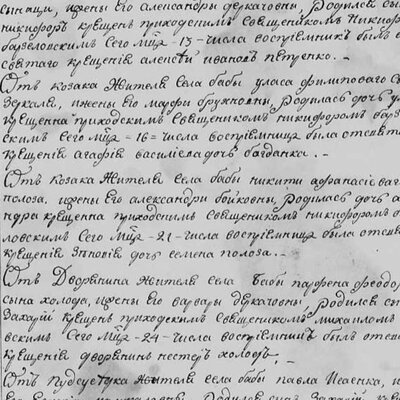 сынащи, ижены Его александры деркачовны, Родился сы
никифоръ крещенъ приходскимъ Священикомъ Никиф
базеловскимъ Сего Мца - 13 - числа восприемникъ былъ о
святаго крещения алексѣй ивановъ петренко. -
Отъ козака жителя Села бабы уласа филиповаго С
Зекали, ижены Его марфы бружковны, Родилась дочъ у
крещенна приходскимъ Священикомъ никифоромъ баз
скимъ Сего Мца = 16 = числа восприемница была отсвята
крещения агафия василиева дочъ богданка. -
Отъ козака жителя Села бабы никиты афанасиева
полоза, ижены Его александры бойковны, Родилась дочъ а
ндра крещенна приходскимъ Священикомъ никифоромъ б
ловскимъ Сего Мца - 21 - числа восприемница была отсвя
крещения дочъ семена полоза. -
Отъ Дворянина жителя села Бабы парфена феодор
сына холода, ижены Его варвары деркачовны, Родился сы
Захарий крещенъ приходскимъ Священикомъ михаиломъ
вскимъ Сего Мца - 24 - числа восприемникъ былъ отсвя
крещения дворянинъ несторъ холодъ. -
Отъ жителя села бабы павла Исаенка, и
Родился сынъ Захарий, к